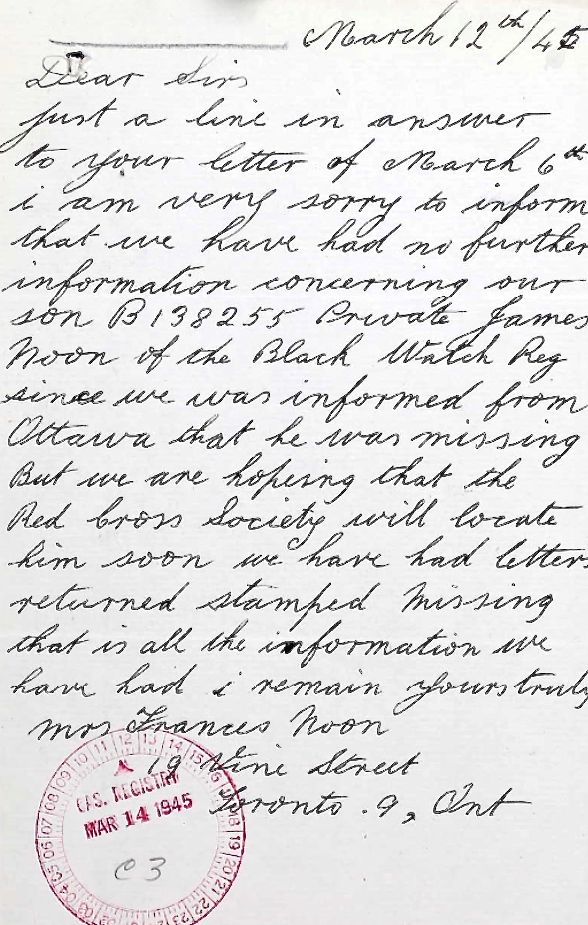 March 12th/45
Dear Sirs
just a line in answer
to your letter of March 6th
i am very sorry to inform
that we have had no further
information concerning our
son B138255 Private James
Noon of the Black Watch Reg
since we was informed from
Ottawa that he was missing
But we are hopeing that the
Red Cross Society will locate
him soon we have had letters
returned stamped Missing
that is all the information we
have had i remain yours truly
Mrs Frances Noon
19 Vine Street
Toronto . 9, Ont
CAS. REGISTRY
MAR 14 1945
C3